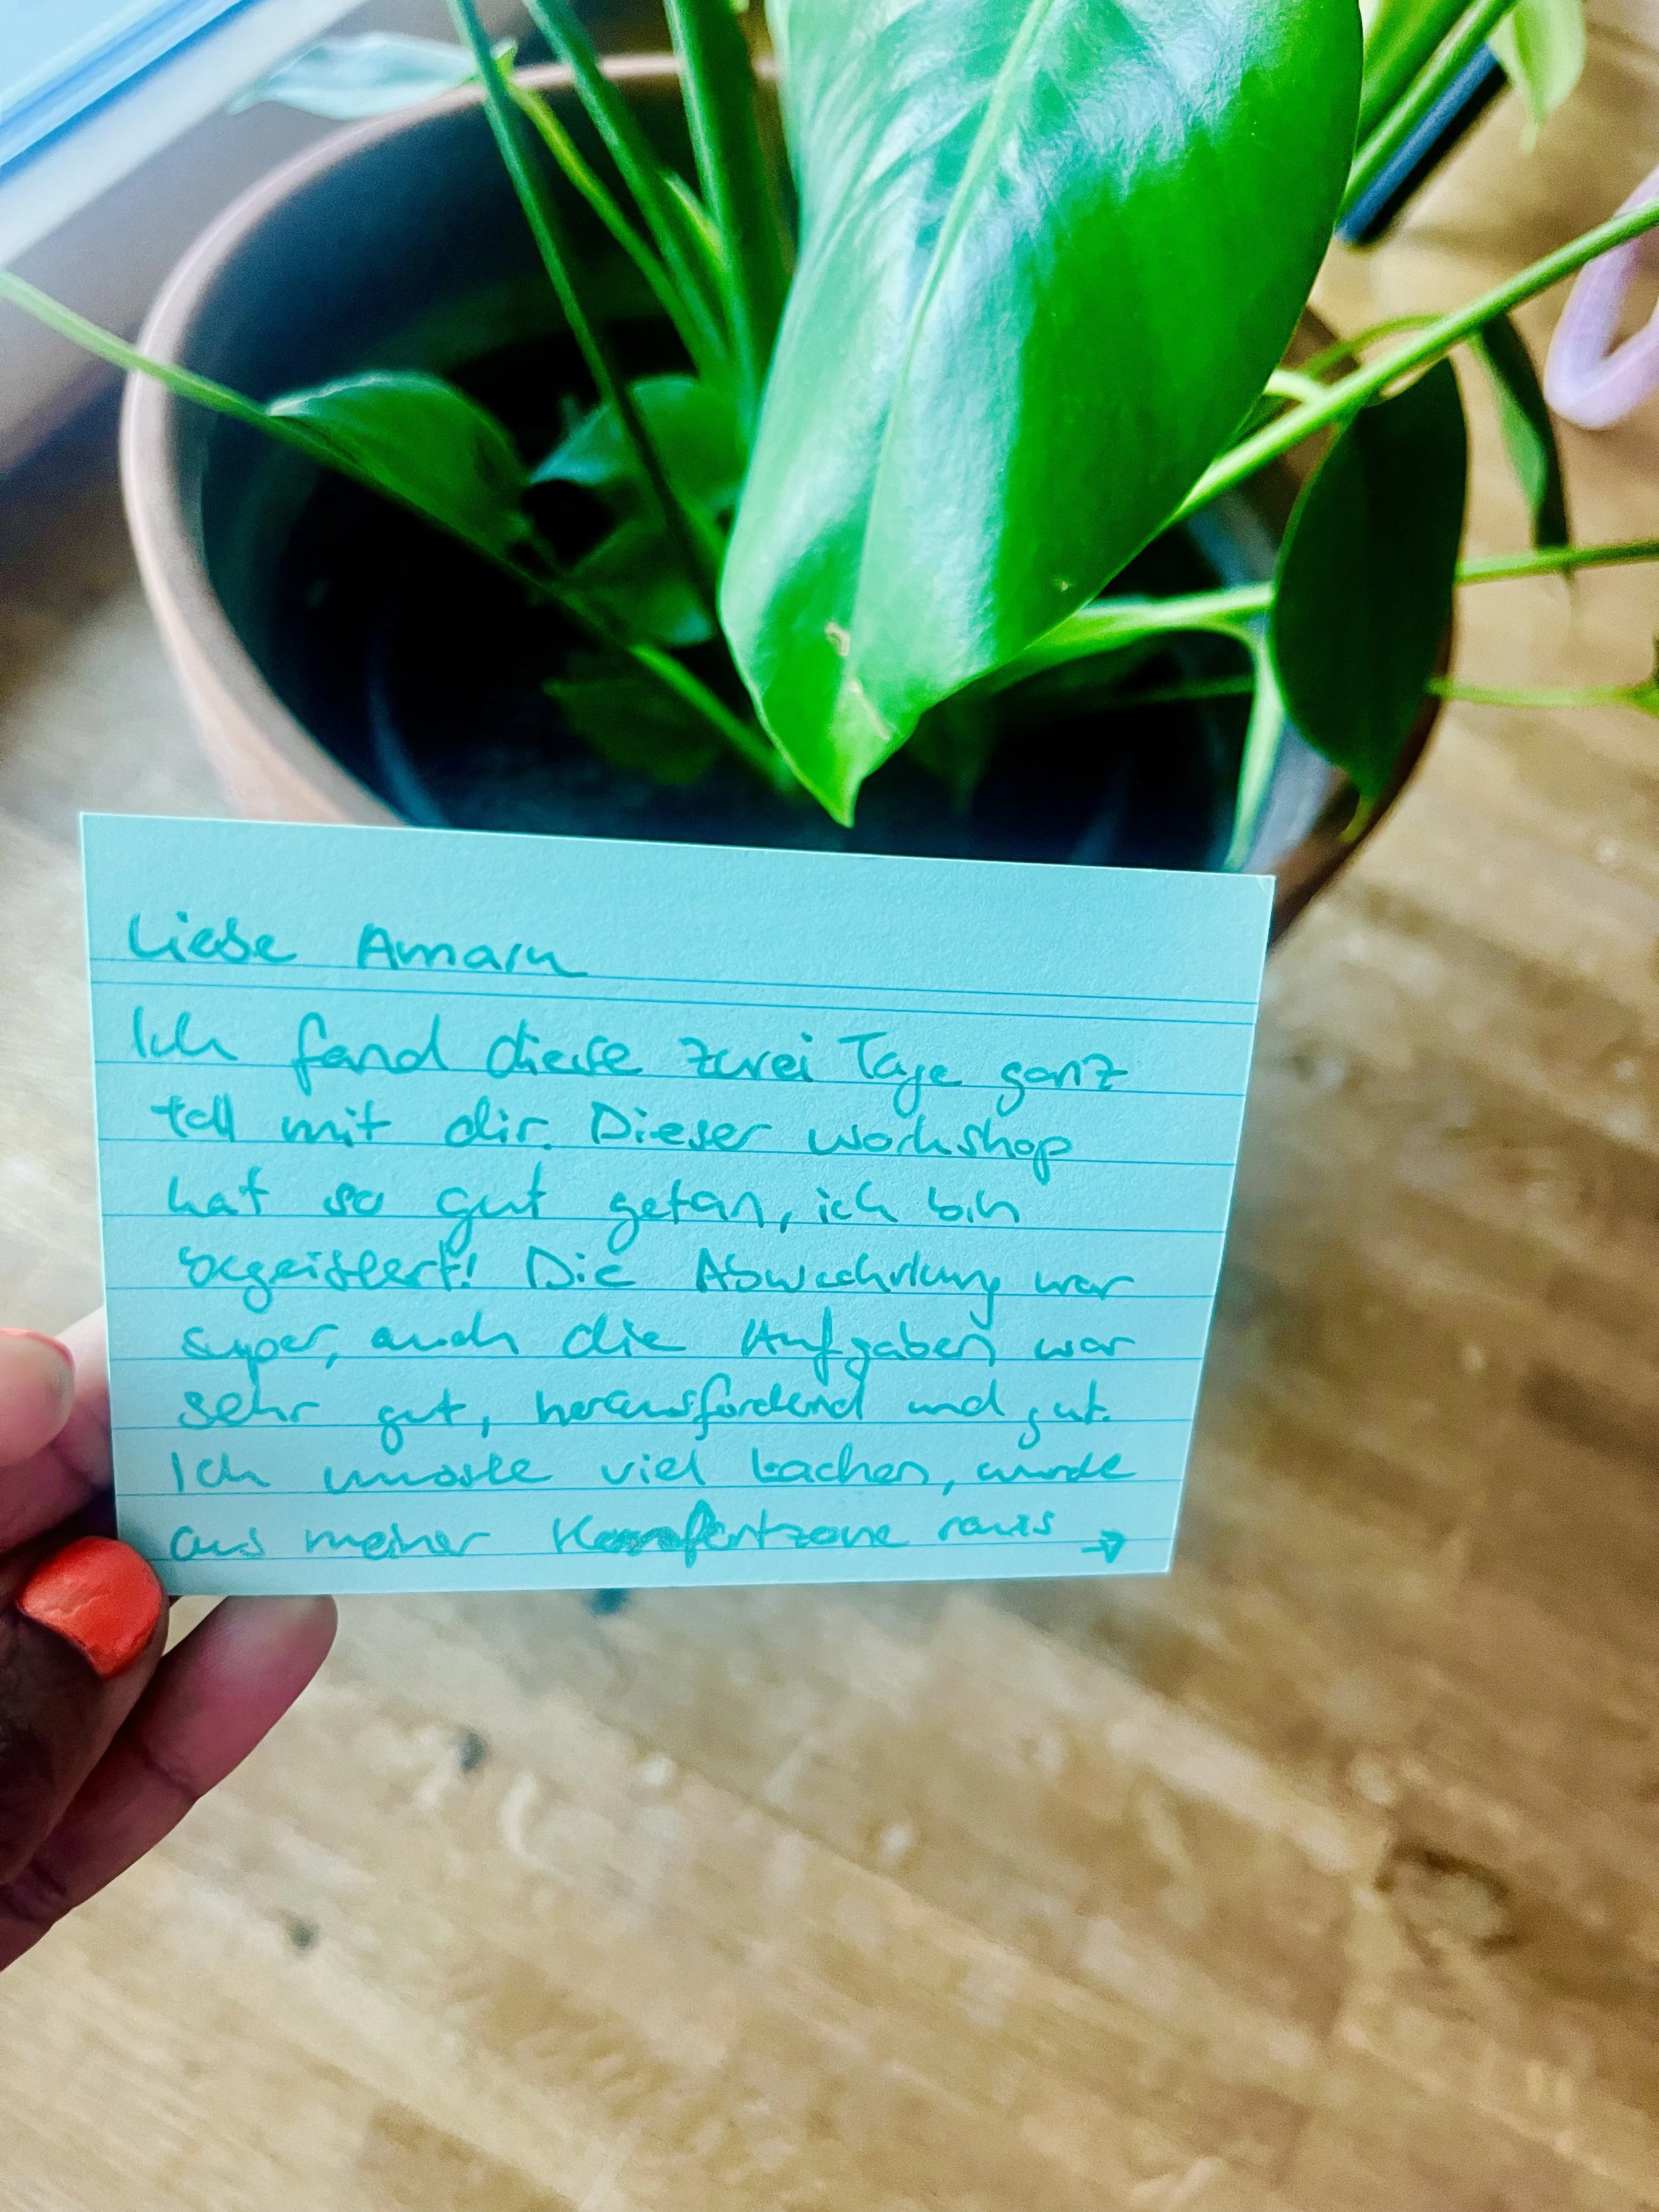 Liebe Amaru
Ich fand diese zwei Tage ganz
toll mit dir. Dieser workshop
hat so gut getan, ich bin
begeistert! Die Abwechslung war
super, auch die Aufgaben war
sehr gut, herausfordend und gut.
Ich musste viel Lachen, wurde
aus meiner Komfortzone raus →